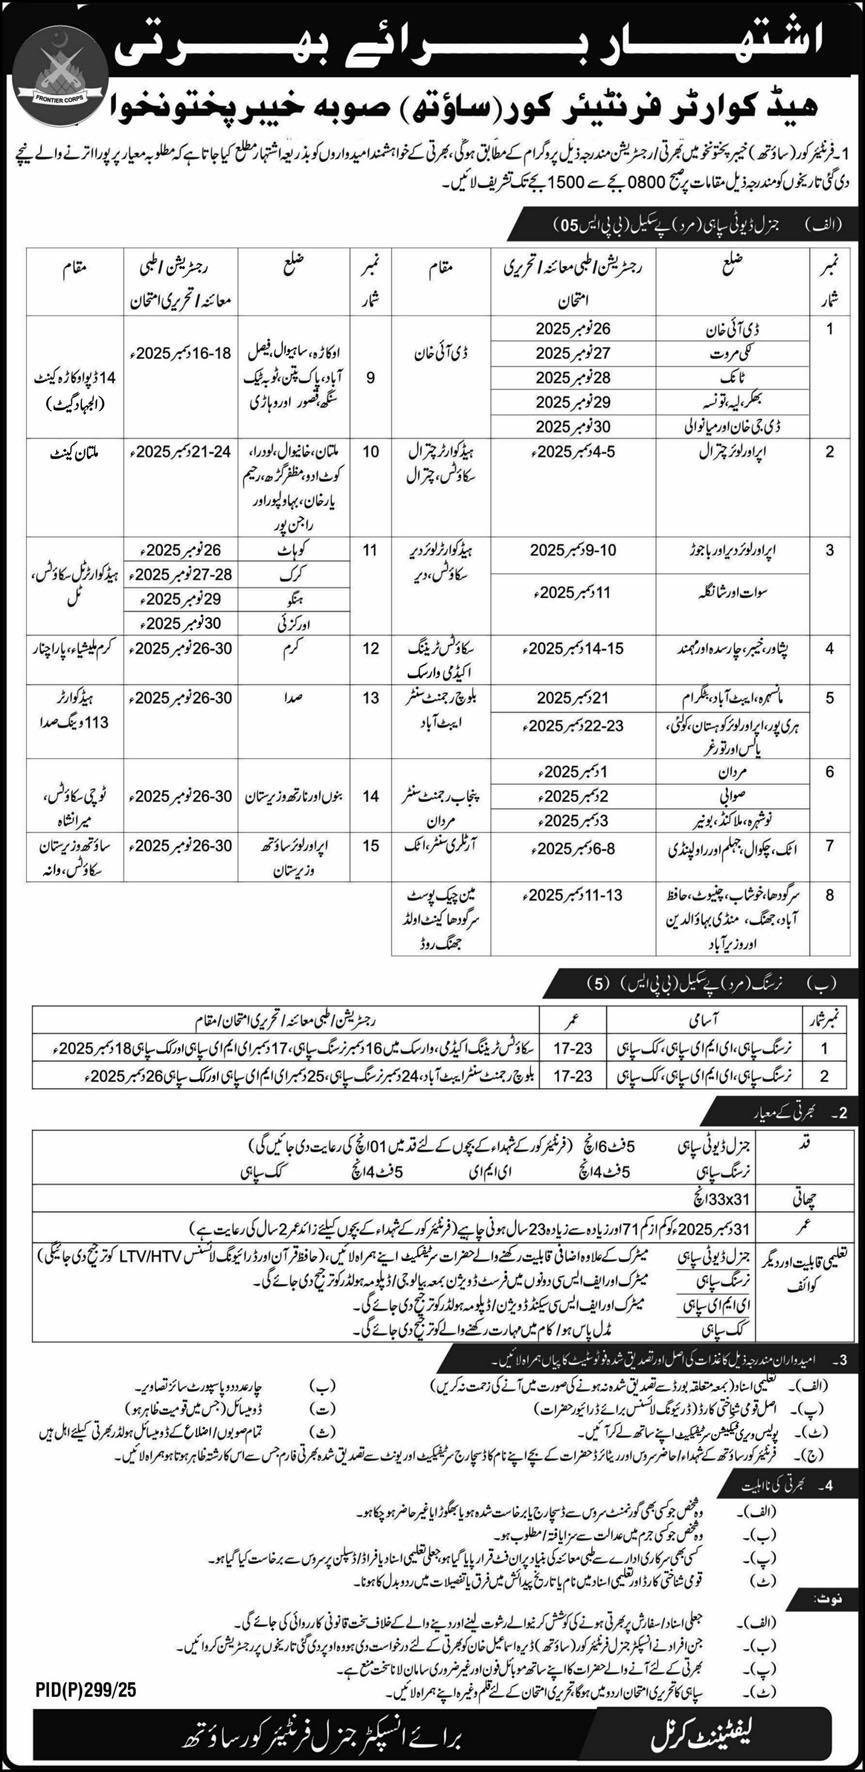 اشتہار برائے بھرتی
FRONTIER CORPS
ھیڈ کوارٹر فرنٹیئر کور (ساؤتھ) صوبہ خیبر پختونخوا
1۔ فرنٹیئر کور (ساؤتھ) خیبر پختونخوا میں بھرتی/رجسٹریشن مندرجہ ذیل پروگرام کے مطابق ہوگی، بھرتی کے خواہشمند امیدواروں کو بذریعہ اشتہار مطلع کیا جاتا ہے کہ مطلوبہ معیار پر پورا اترنے والے نیچے
دی گئی تاریخوں کو مندرجہ ذیل مقامات پر صبح 0800 بجے سے 1500 بجے تک تشریف لائیں۔
(الف) جنرل ڈیوٹی سپاہی (مرد) پے سکیل (بی پی ایس 05)
نمبر شمار | ضلع | رجسٹریشن/طبی معائنہ/تحریری امتحان | مقام
1 | ڈی آئی خان | 26 نومبر 2025 | ڈی آئی خان
لکی مروت | 27 نومبر 2025
ٹانک | 28 نومبر 2025
بھکر، لیہ، تونسہ | 29 نومبر 2025
ڈی جی خان اور میانوالی | 30 نومبر 2025
2 | اپر اور لوئر چترال | 4-5 دسمبر 2025ء | ہیڈ کوارٹر چترال سکاؤٹس، چترال
3 | اپر اور لوئر دیر اور باجوڑ | 9-10 دسمبر 2025 | ہیڈ کوارٹر لوئر دیر سکاؤٹس، دیر
سوات اور شانگلہ | 11 دسمبر 2025ء
4 | پشاور، خیبر، چارسدہ اور مہمند | 14-15 دسمبر 2025ء | سکاؤٹس ٹریننگ اکیڈمی وارسک
5 | مانسہرہ، ایبٹ آباد، بٹگرام | 21 دسمبر 2025 | بلوچ رجمنٹ سنٹر ایبٹ آباد
ہری پور، اپر اور لوئر کوہستان، کولئی، پالس اور تورغر | 22-23 دسمبر 2025ء
6 | مردان | 1 دسمبر 2025ء | پنجاب رجمنٹ سنٹر مردان
صوابی | 2 دسمبر 2025ء
نوشہرہ، ملاکنڈ، بونیر | 3 دسمبر 2025ء
7 | اٹک، چکوال، جہلم اور راولپنڈی | 6-8 دسمبر 2025ء | آرٹلری سنٹر، اٹک
8 | سرگودھا، خوشاب، چنیوٹ، حافظ آباد، جھنگ، منڈی بہاؤالدین اور وزیر آباد | 11-13 دسمبر 2025ء | مین چیک پوسٹ سرگودھا کینٹ اولڈ جھنگ روڈ
نمبر شمار | ضلع | رجسٹریشن/طبی معائنہ/تحریری امتحان | مقام
9 | اوکاڑہ، ساہیوال، فیصل آباد، پاک پتن، ٹوبہ ٹیک سنگھ، قصور اور وہاڑی | 16-18 دسمبر 2025ء | 14 ڈپو اوکاڑہ کینٹ (الجہاد گیٹ)
10 | ملتان، خانیوال، لودھرا، کوٹ ادو، مظفر گڑھ، رحیم یار خان، بہاولپور اور راجن پور | 21-24 دسمبر 2025ء | ملتان کینٹ
11 | کوہاٹ | 26 نومبر 2025ء | ہیڈ کوارٹر ٹل سکاؤٹس، ٹل
کرک | 27-28 نومبر 2025ء
ہنگو | 29 نومبر 2025ء
اورکزئی | 30 نومبر 2025ء
12 | کرم | 26-30 نومبر 2025ء | کرم ملیشیاء، پاراچنار
13 | صدا | 26-30 نومبر 2025ء | ہیڈ کوارٹر 113 ونگ صدا
14 | بنوں اور نارتھ وزیرستان | 26-30 نومبر 2025ء | ٹوچی سکاؤٹس، میرانشاہ
15 | اپر اور لوئر ساؤتھ وزیرستان | 26-30 نومبر 2025ء | ساؤتھ وزیرستان سکاؤٹس، وانہ
(ب) نرسنگ (مرد) پے سکیل (بی پی ایس) (5)
نمبر شمار | آسامی | عمر | رجسٹریشن/طبی معائنہ/تحریری امتحان/مقام
1 | نرسنگ سپاہی، ای ایم ای سپاہی، کک سپاہی | 17-23 | سکاؤٹس ٹریننگ اکیڈمی، وارسک میں 16 دسمبر نرسنگ سپاہی، 17 دسمبر ای ایم ای سپاہی اور کک سپاہی 18 دسمبر 2025ء
2 | نرسنگ سپاہی، ای ایم ای سپاہی، کک سپاہی | 17-23 | بلوچ رجمنٹ سنٹر ایبٹ آباد، 24 دسمبر نرسنگ سپاہی، 25 دسمبر ای ایم ای سپاہی اور کک سپاہی 26 دسمبر 2025ء
2۔ بھرتی کے معیار
قد | جنرل ڈیوٹی سپاہی 5 فٹ 6 انچ (فرنٹیئر کور کے شہداء کے بچوں کے لئے قد میں 01 انچ کی رعایت دی جائیں گی)
نرسنگ سپاہی 5 فٹ 4 انچ ای ایم ای 5 فٹ 4 انچ کک سپاہی
چھاتی | 33x31 انچ
عمر | 31 دسمبر 2025ء کو کم از کم 17 اور زیادہ سے زیادہ 23 سال ہونی چاہیے (فرنٹیئر کور کے شہداء کے بچوں کیلئے زائد عمر 2 سال کی رعایت ہے)
تعلیمی قابلیت اور دیگر کوائف | جنرل ڈیوٹی سپاہی | میٹرک کے علاوہ اضافی قابلیت رکھنے والے حضرات سرٹیفکیٹ اپنے ہمراہ لائیں، (حافظ قرآن اور ڈرائیونگ لائسنس LTV/HTV کو ترجیح دی جائیگی)
نرسنگ سپاہی | میٹرک اور ایف ایس سی دونوں میں فرسٹ ڈویژن بمعہ بیالوجی/ڈپلومہ ہولڈر کو ترجیح دی جائے گی۔
ای ایم ای سپاہی | میٹرک اور ایف ایس سی سیکنڈ ڈویژن/ڈپلومہ ہولڈر کو ترجیح دی جائے گی۔
کک سپاہی | مڈل پاس ہو/کام میں مہارت رکھنے والے کو ترجیح دی جائے گی۔
3۔ امیدواران مندرجہ ذیل کاغذات کی اصل اور تصدیق شدہ فوٹو سٹیٹ کاپیاں ہمراہ لائیں۔
(الف)۔ تعلیمی اسناد (بمعہ متعلقہ بورڈ سے تصدیق شدہ نہ ہونے کی صورت میں آنے کی زحمت نہ کریں) (ب) چار عدد پاسپورٹ سائز تصاویر۔
(پ)۔ اصل قومی شناختی کارڈ (ڈرائیونگ لائسنس برائے ڈرائیور حضرات) (ت) ڈومیسائل (جس میں قومیت ظاہر ہو)
(ٹ)۔ پولیس ویری فیکیشن سرٹیفکیٹ اپنے ساتھ لے کر آئیں۔ (ث) تمام صوبوں/اضلاع کے ڈومیسائل ہولڈر بھرتی کیلئے اہل ہیں
(ج)۔ فرنٹیئر کور ساؤتھ کے شہداء/حاضر سروس اور ریٹائرڈ حضرات کے بچے اپنے نام کا ڈسچارج سرٹیفکیٹ اور یونٹ سے تصدیق شدہ بھرتی فارم جس سے اس کا رشتہ ظاہر ہوتا ہو ہمراہ لائیں۔
4۔ بھرتی کی نااہلیت
(الف)۔ وہ شخص جو کسی بھی گورنمنٹ سروس سے ڈسچارج یا برخاست شدہ ہو یا بھگوڑا یا غیر حاضر ہو چکا ہو۔
(ب)۔ وہ شخص جو کسی جرم میں عدالت سے سزا یافتہ/مطلوب ہو۔
(پ)۔ کسی بھی سرکاری ادارے سے طبی معائنہ کی بنیاد پر ان فٹ قرار پایا گیا ہو، جعلی تعلیمی اسناد یا فراڈ/ڈسپلن پر سروس سے برخاست کیا گیا ہو۔
(ٹ) قومی شناختی کارڈ اور تعلیمی اسناد میں نام یا تاریخ پیدائش میں فرق یا تفصیلات میں ردوبدل کا ہونا۔
نوٹ:
(الف)۔ جعلی اسناد/سفارش پر بھرتی ہونے کی کوشش کرنیوالے رشوت لینے اور دینے والے کے خلاف سخت قانونی کارروائی کی جائے گی۔
(ب)۔ جن افراد نے انسپکٹر جنرل فرنٹیئر کور (ساؤتھ) ڈیرہ اسماعیل خان کو بھرتی کے لئے درخواست دی ہو وہ اوپر دی گئی تاریخوں پر رجسٹریشن کروائیں۔
(پ)۔ بھرتی کے لئے آنے والے حضرات کا اپنے ساتھ موبائل فون اور غیر ضروری سامان لانا سخت منع ہے۔
(ٹ)۔ سپاہی کا تحریری امتحان اردو میں ہوگا، تحریری امتحان کے لئے قلم وغیرہ اپنے ہمراہ لائیں۔
PID(P)299/25
لیفٹیننٹ کرنل
برائے انسپکٹر جنرل فرنٹیئر کور ساؤتھ